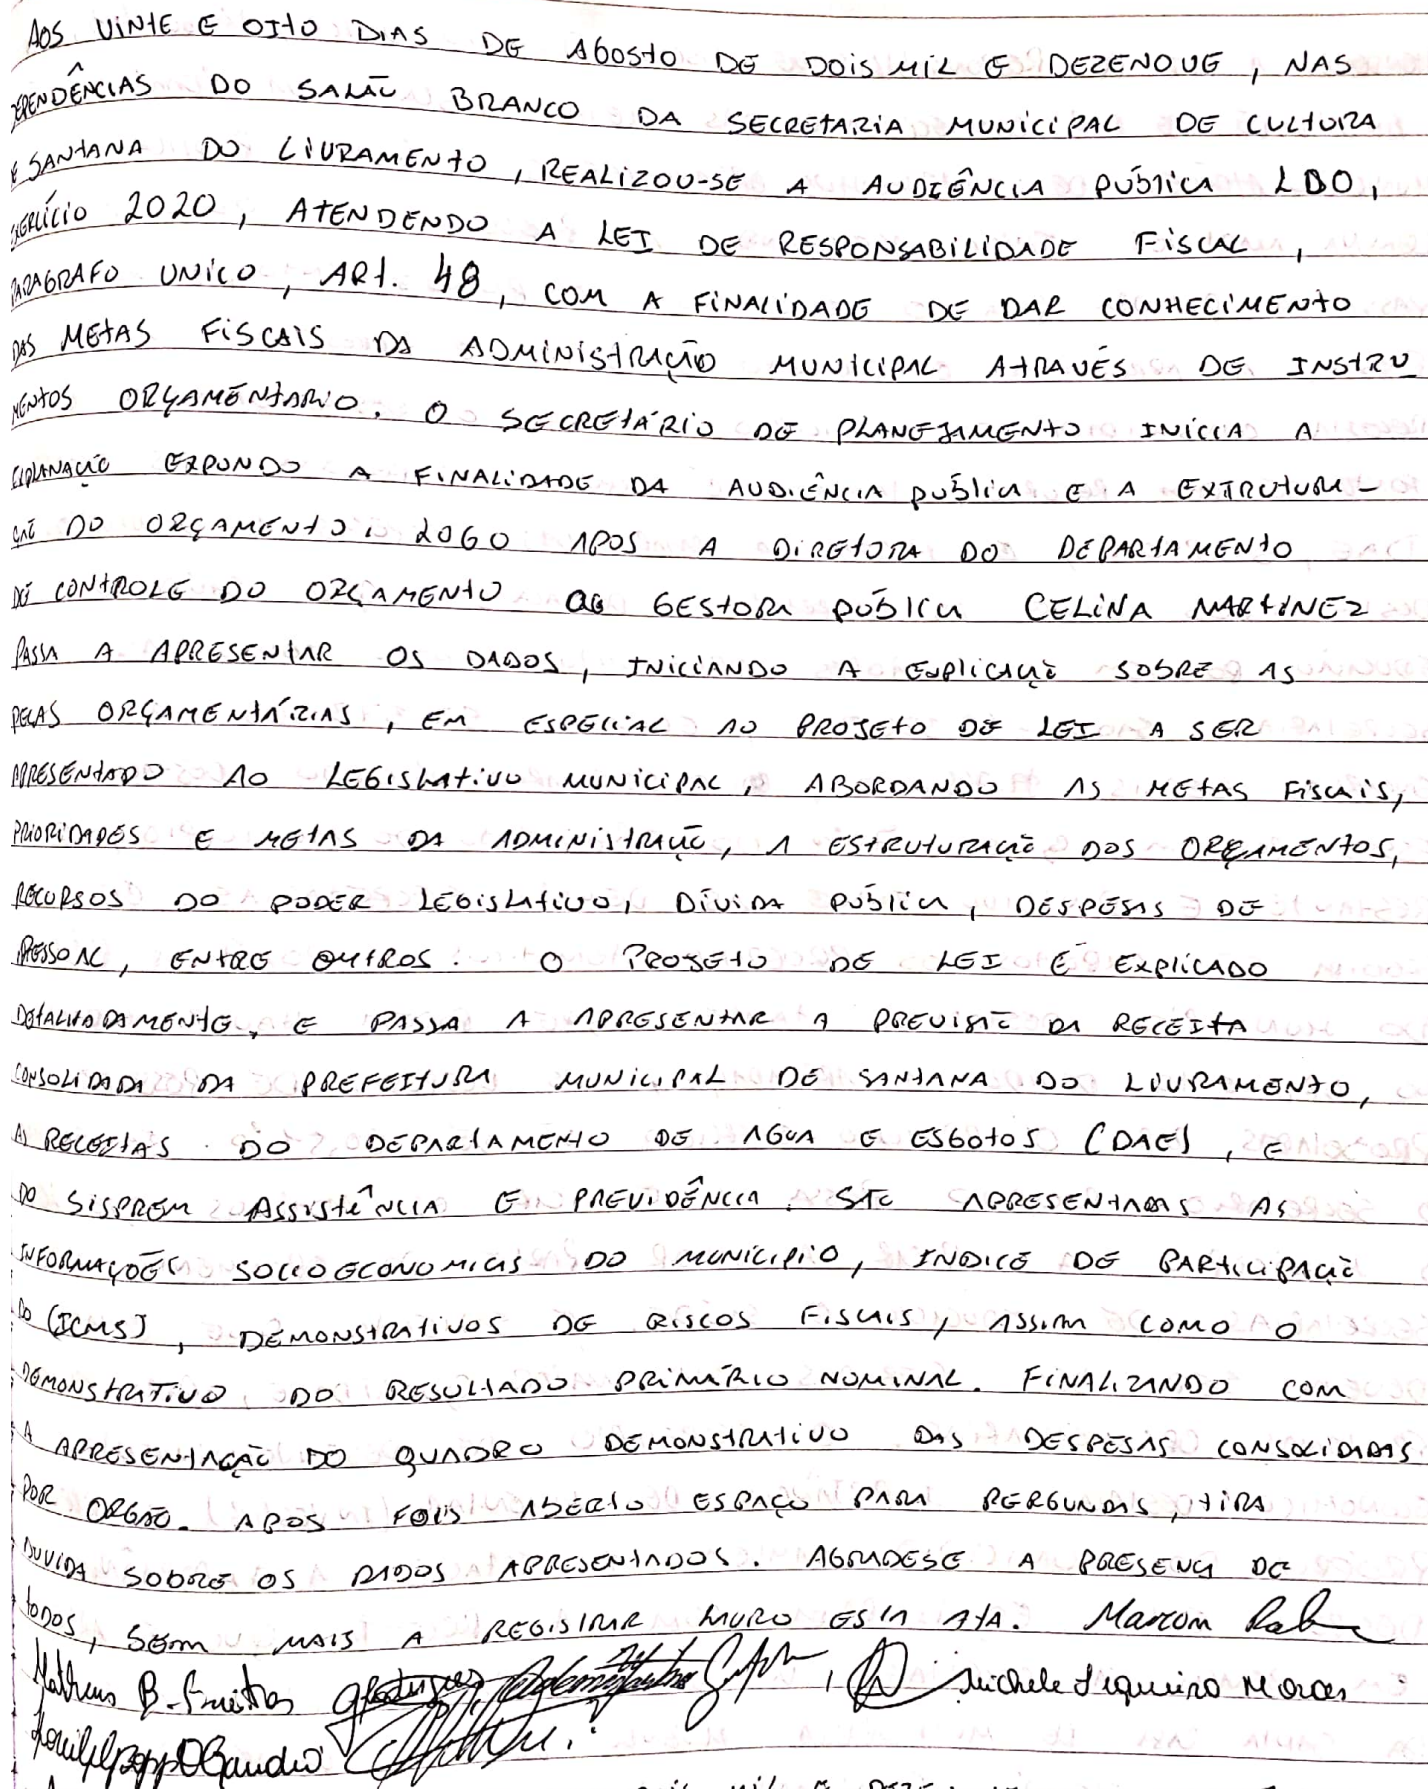 AOS VINTE E OITO DIAS DE AGOSTO DE DOIS MIL E DEZENOVE, NAS
DEPENDÊNCIAS DO SALÃO BRANCO DA SECRETARIA MUNICIPAL DE CULTURA
E SANTANA DO LIVRAMENTO, REALIZOU-SE A AUDIÊNCIA PÚBLICA LDO,
EXERCÍCIO 2020, ATENDENDO A LEI DE RESPONSABILIDADE FISCAL,
PARAGRAFO UNICO, ART. 48, COM A FINALIDADE DE DAR CONHECIMENTO
DAS METAS FISCAIS DA ADMINISTRAÇÃO MUNICIPAL ATRAVÉS DE INSTRU
MENTOS ORÇAMENTARIO. O SECRETÁRIO DE PLANEJAMENTO INICIA A
EXPLANAÇÃO EXPONDO A FINALIDADE DA AUDIÊNCIA PÚBLICA E A EXTRUTURA-
ÇÃO DO ORÇAMENTO. LOGO APOS A DIRETORA DO DEPARTAMENTO
DE CONTROLE DO ORÇAMENTO GESTORA PÚBLICA CELINA MARTINEZ
PASSA A APRESENTAR OS DADOS, INICIANDO A EXPLICAÇÃO SOBRE AS
PEÇAS ORÇAMENTÁRIAS, EM ESPECIAL AO PROJETO DE LEI A SER
APRESENTADO AO LEGISLATIVO MUNICIPAL, ABORDANDO AS METAS FISCAIS,
PRIORIDADES E METAS DA ADMINISTRAÇÃO, A ESTRUTURAÇÃO DOS ORÇAMENTOS,
RECURSOS DO PODER LEGISLATIVO, DÍVIDA PÚBLICA, DESPESAS DE
PESSOAL, ENTRE OUTROS. O PROJETO DE LEI É EXPLICADO
DETALHADAMENTE, E PASSA A APRESENTAR A PREVISÃO DA RECEITA
CONSOLIDADA DA PREFEITURA MUNICIPAL DE SANTANA DO LIVRAMENTO,
AS RECEITAS DO DEPARTAMENTO DE AGUA E ESGOTOS (DAE), E
DO SISPREM ASSISTÊNCIA E PREVIDÊNCIA. SÃO APRESENTADAS AS
INFORMAÇÕES SOCIOECONOMICAS DO MUNICIPIO, INDICE DE PARTICIPAÇÃO
DO (ICMS), DEMONSTRATIVOS DE RISCOS FISCAIS, ASSIM COMO O
DEMONSTRATIVO DO RESULTADO PRIMÁRIO NOMINAL. FINALIZANDO COM
A APRESENTAÇÃO DO QUADRO DEMONSTRATIVO DAS DESPESAS CONSOLIDADAS
POR ORGÃO. APOS FOIS ABERTO ESPAÇO PARA PERGUNTAS, TIRA
DUVIDA SOBRE OS DADOS APRESENTADOS. AGRADESE A PRESENÇA DE
TODOS, SEM MAIS A REGISTRAR LAVRO ESTA ATA. Marcon
Matheus B. Freitas Michele Siqueira Moraes